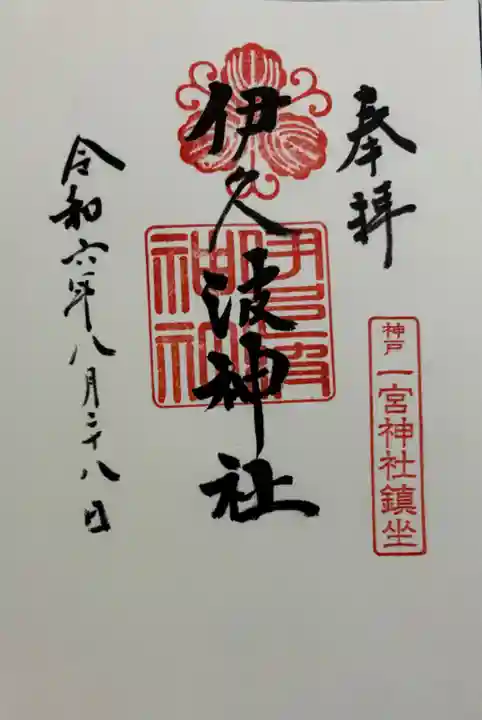 奉拝
神戸 一宮神社鎮坐
伊久波神社
伊久波
神社
令和六年八月二十八日